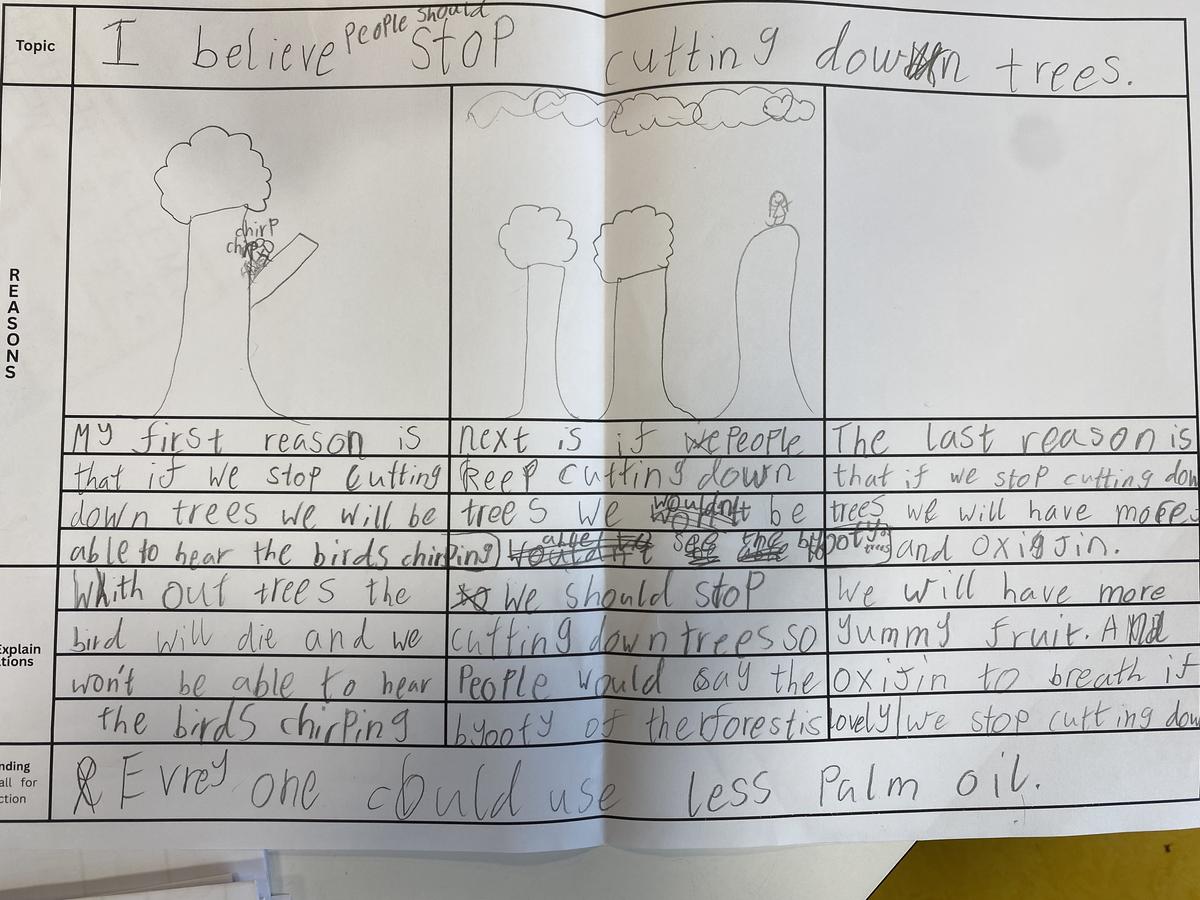 Topic
I believe People should Stop cutting down trees.
REASONS
chirp
chirp
My first reason is
that if we stop cutting
down trees we will be
able to hear the birds chirping
next is if People
keep cutting down
trees we be
The last reason is
that if we stop cutting dow
trees we will have more
and oxigjin.
Explain
tions
Whith out trees the
bird will die and we
won't be able to hear
the birds chirping
We should stop
cutting down trees so
People would say the
byooty of the forest is lovely
We will have more
yummy fruit. And
oxijin to breath if
we stop cutting dow
nding
all for
ction
Evrey one could use less Palm oil.